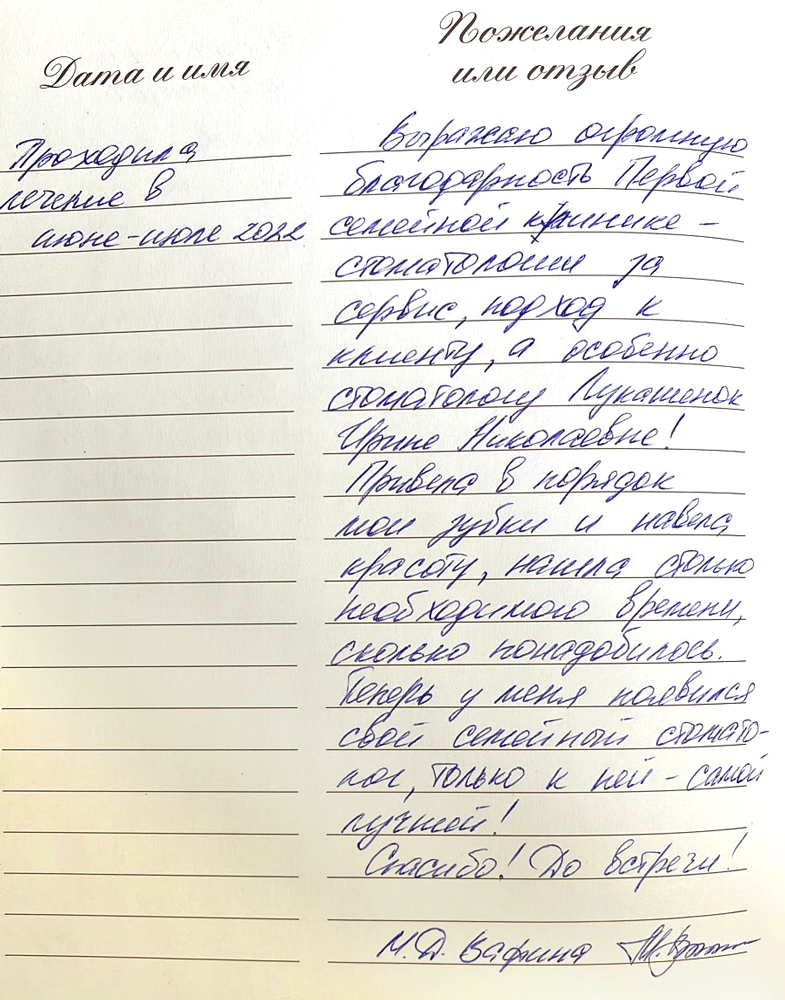 Дата и имя
Пожелания
или отзыв
Проходила
лечение в
июне-июле 2022
Выражаю огромную
благодарность Первой
семейной клинике -
стоматологии за
сервис, подход к
клиенту, а особенно
стоматологу Лукашенок
Ирине Николаевне!
Привела в порядок
мои зубки и навела
красоту, нашла столько
необходимого времени,
сколько понадобилось.
Теперь у меня появился
свой семейный стомато-
лог, только к ней - самой
лучшей!
Спасибо! До встречи!
М.Д. Вафина